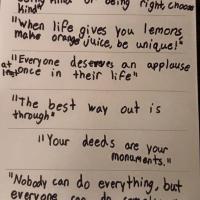 being kind or being right, choose
kind"
"When life gives you lemons,
make orange juice, be unique!"
"Everyone deserves an applause
at least once in their life"
"The best way out is
through"
"Your deeds are your
monuments."
"Nobody can do everything, but
everyone can do